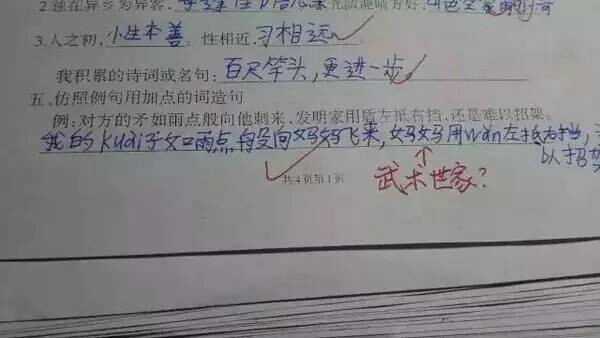 2.独在异乡为异客，每逢佳
3.人之初，小生本善。性相近，习相远。
我积累的诗词或名句：百尺竿头，更进一步。
五、仿照例句用加点的词造句
例：对方的矛如雨点般向他刺来，发明家用盾左抵右挡，还是难以招架。
我的kuài子如雨点般向妈妈飞来，妈妈用wǎn左抵右挡，
以招架
武术世家？
共4页第1页